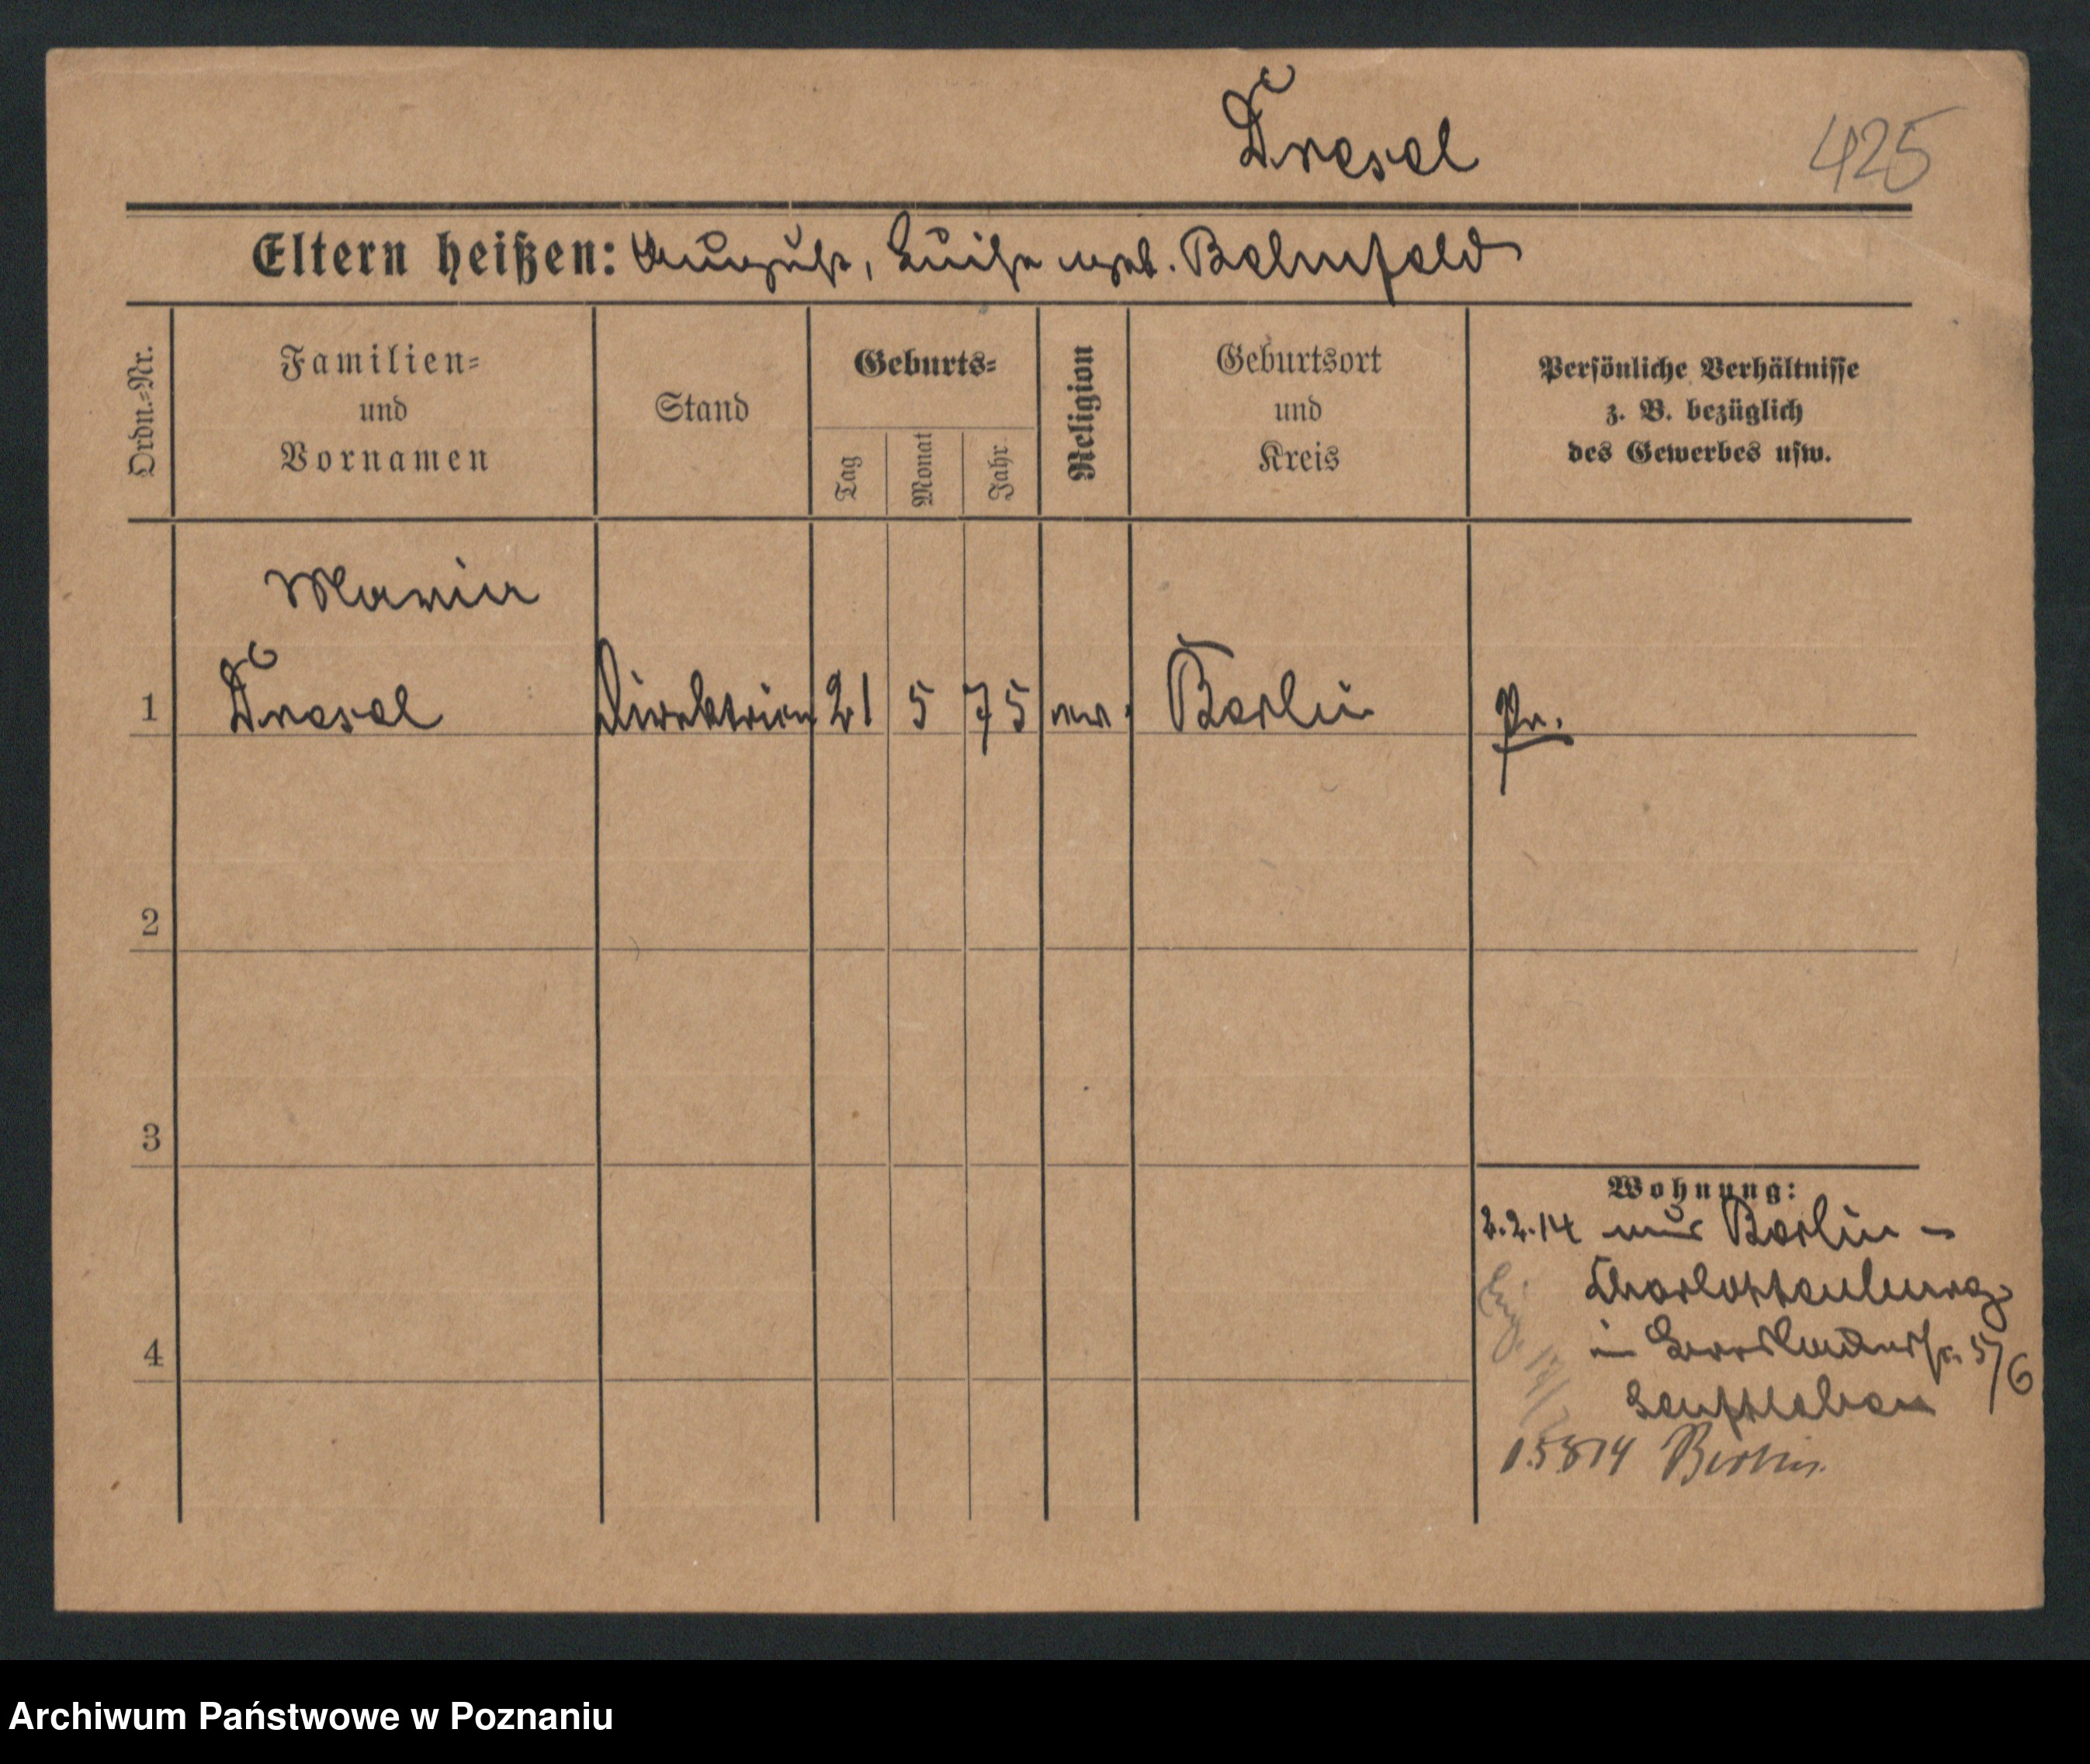 Dresel
425
Eltern heißen: August, Luise geb. Behnfeld
Ordn.-Nr.
Familien-
und
Vornamen
Stand
Geburts-
Tag
Monat
Jahr
Religion
Geburtsort
und
Kreis
Persönliche Verhältnisse
z. B. bezüglich
des Gewerbes usw.
Marie
1 Dresel Direktrice 21 5 75 ev. Berlin Pr.
2
3
Wohnung:
2.2.14 aus Berlin-
Charlottenburg
4
5/6
15814 Berlin.
Archiwum Państwowe w Poznaniu